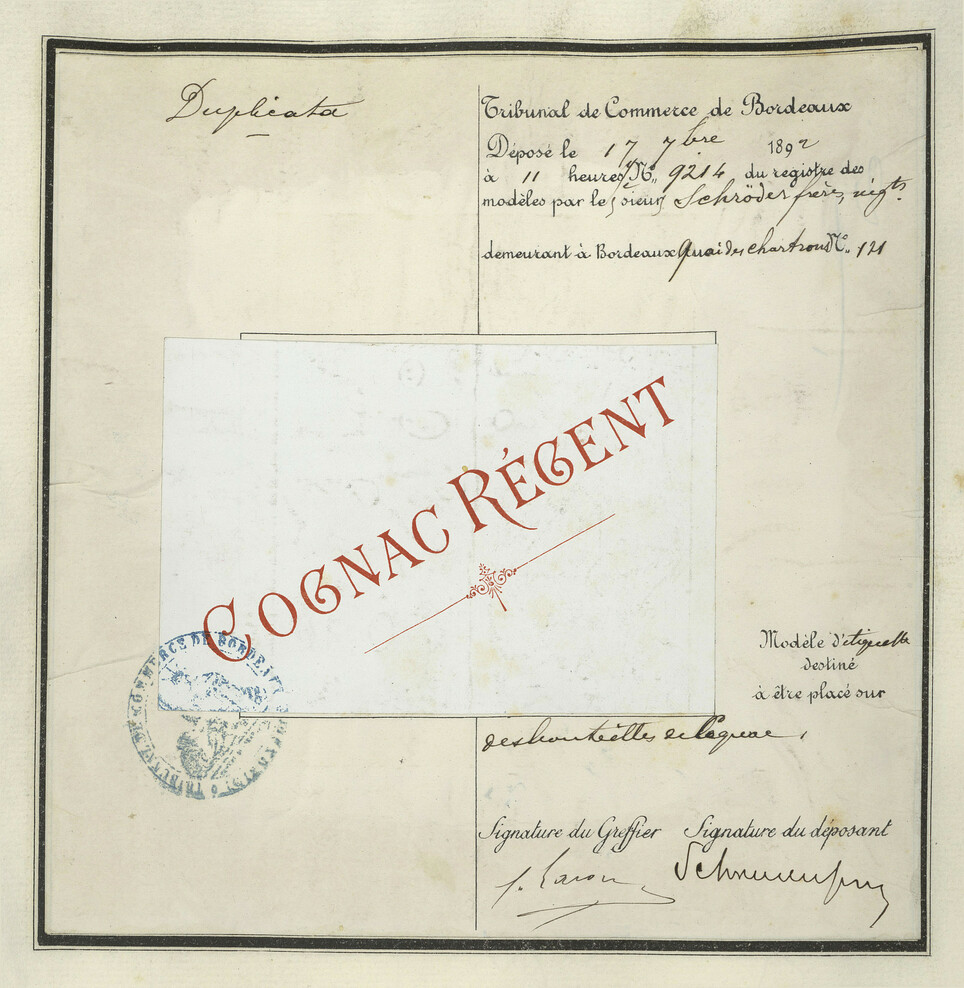 Duplicata
Tribunal de Commerce de Bordeaux
Déposé le 17 7bre 1892
à 11 heures No. 9214 du registre des
modèles par le sieur Schröder frère, négts.
demeurant à Bordeaux Quai des Chartrons No. 121
COGNAC RÉGENT
TRIBUNAL DE COMMERCE DE BORDEAUX
Modèle d'étiquette
destiné
à être placé sur
des bouteilles de Cognac,
Signature du Greffier Signature du déposant